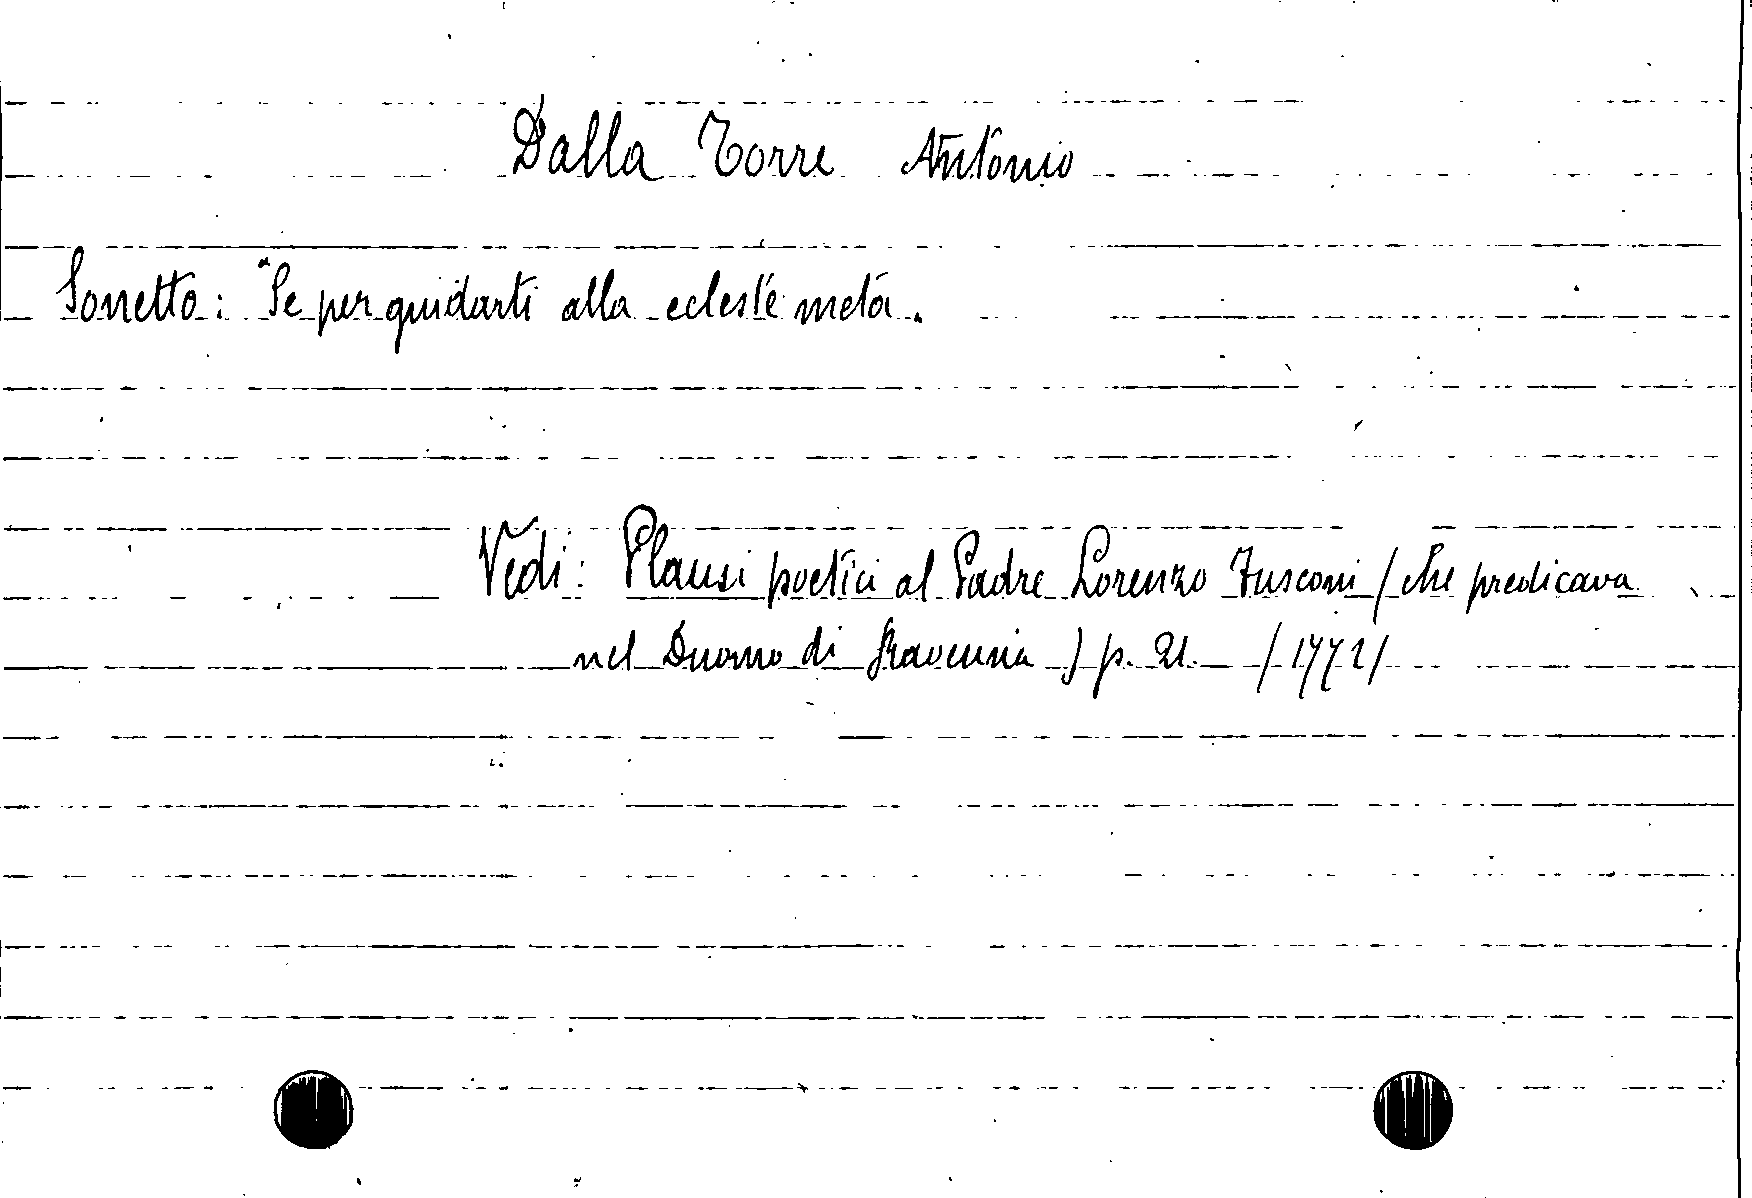 Dalla Torre Antonio
Sonetto: "Se per guidarti alla celeste meta.
Vedi: Plausi poetici al Padre Lorenzo Fusconi / che predicava
nel Duomo di Ravenna ) p. 21. /1772/